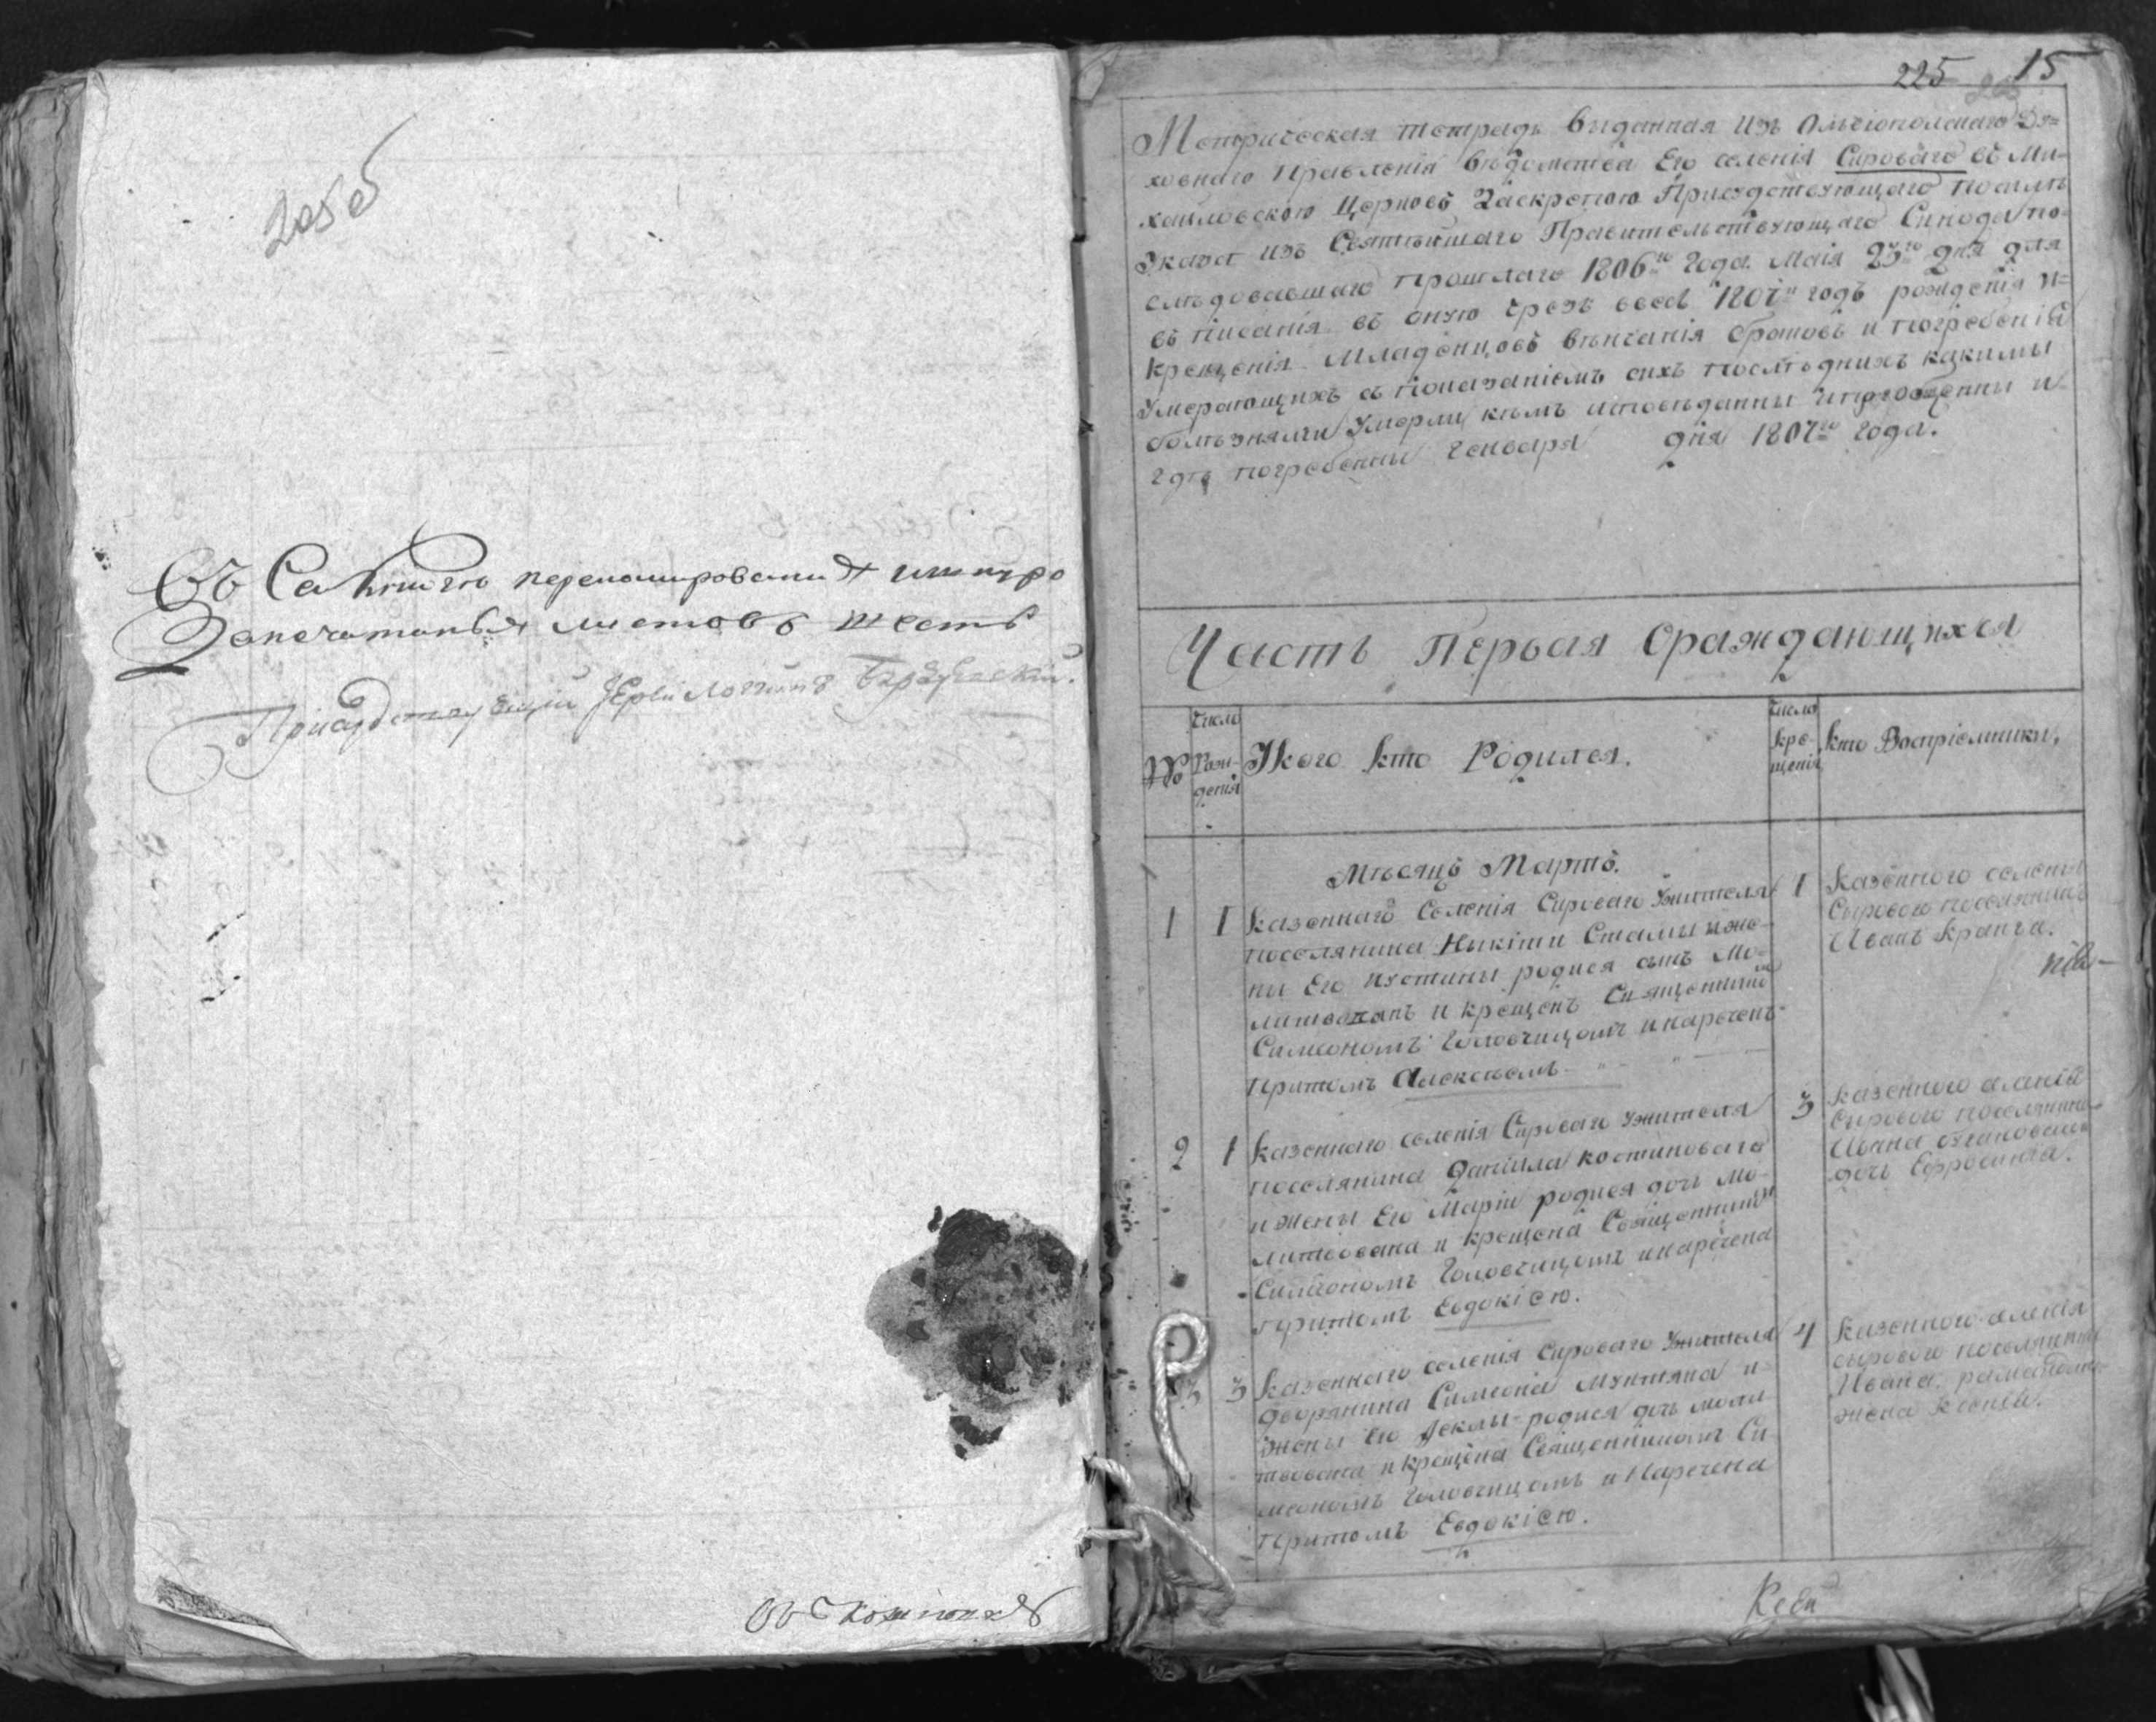 205 об
Въ Сей книгѣ перенумерованных и шнуро
Запечатанных листовъ шесть
Присудствующій Іерей Логгинъ
225 15
Метрическая тетрадь выданная изъ Ольвіопольскаго Ду=
ховнаго Правленія вѣдомства Его селенія Сироваго въ Ми-
хайловскою Церковъ Заскрепою Присудствующаго посилѣ
Указа изъ Святѣйшаго Правительствующаго Синода по-
слѣдовавшаго прошлаго 1806го года Маія 23го дня для
въ писанія въ оную чрезъ весь 1807й годъ рожденія и=
крещенія младенцовъ вѣнчанія браковъ и погребенія
Умерающихъ съ показаніемъ сихъ послѣднихъ какими
болѣзнями умерли кѣмъ исповѣданны и приобщенны и
гдѣ погребенны Генваря дня 1807го года.
Часть Первая Сраждающихся
№
Число Рож-
денія
Укого кто Родился.
Число Кре-
щенія
кто Воспріемники,
Мѣсяцъ Мартъ.
1 1 казеннаго Селенія Сироваго Ужителя
поселянина Никиты Стамы и же-
ны Его Иустины родися сынъ Мо-
литвованъ и крещенъ Священникомъ
Симеономъ Головчицомъ и нареченъ
притомъ Алексѣемъ
1 Казенного селенія
Сырового поселянинъ
Иванъ Крапга.
2 1 Казеннаго селенія Сироваго Ужителя
поселянина Даніила Костиноваго
и жены Его Маріи родися дочь Мо-
литвована и крещена Священникомъ
Симеономъ Головчицомъ и наречена
притомъ Евдокіею.
3 казенного селенія
Сырового поселянина
Ивана
дочь Ефросинія.
3 3 Казеннаго селенія Сироваго Ужителя
дворянина Симеона Мунтяна и
жены Его Феклы родися дочь моли
твована и крещена Священникомъ Си
меономъ Головчицомъ и Наречена
притомъ Евдокіею.
4 Казенного селенія
сырового поселянина
Ивана
жена Ксенія.